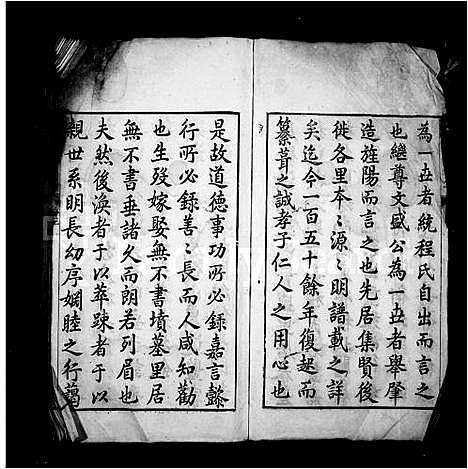 為一世者統程氏自出而言之
也繼尊文盛公為一世者舉肇
造旌陽而言之也先居集賢後
徙各里本〻源〻明譜載之詳
矣迄今一百五十餘年復起而
纂葺之誠孝子仁人之用心也
是故道德事功所必錄嘉言懿
行所必錄善〻長而人咸知勸
也生歿嫁娶無不書墳墓里居
無不書垂諸久而朗若列眉也
夫然後渙者于以萃踈者于以
親世系明長幼序婣睦之行藹